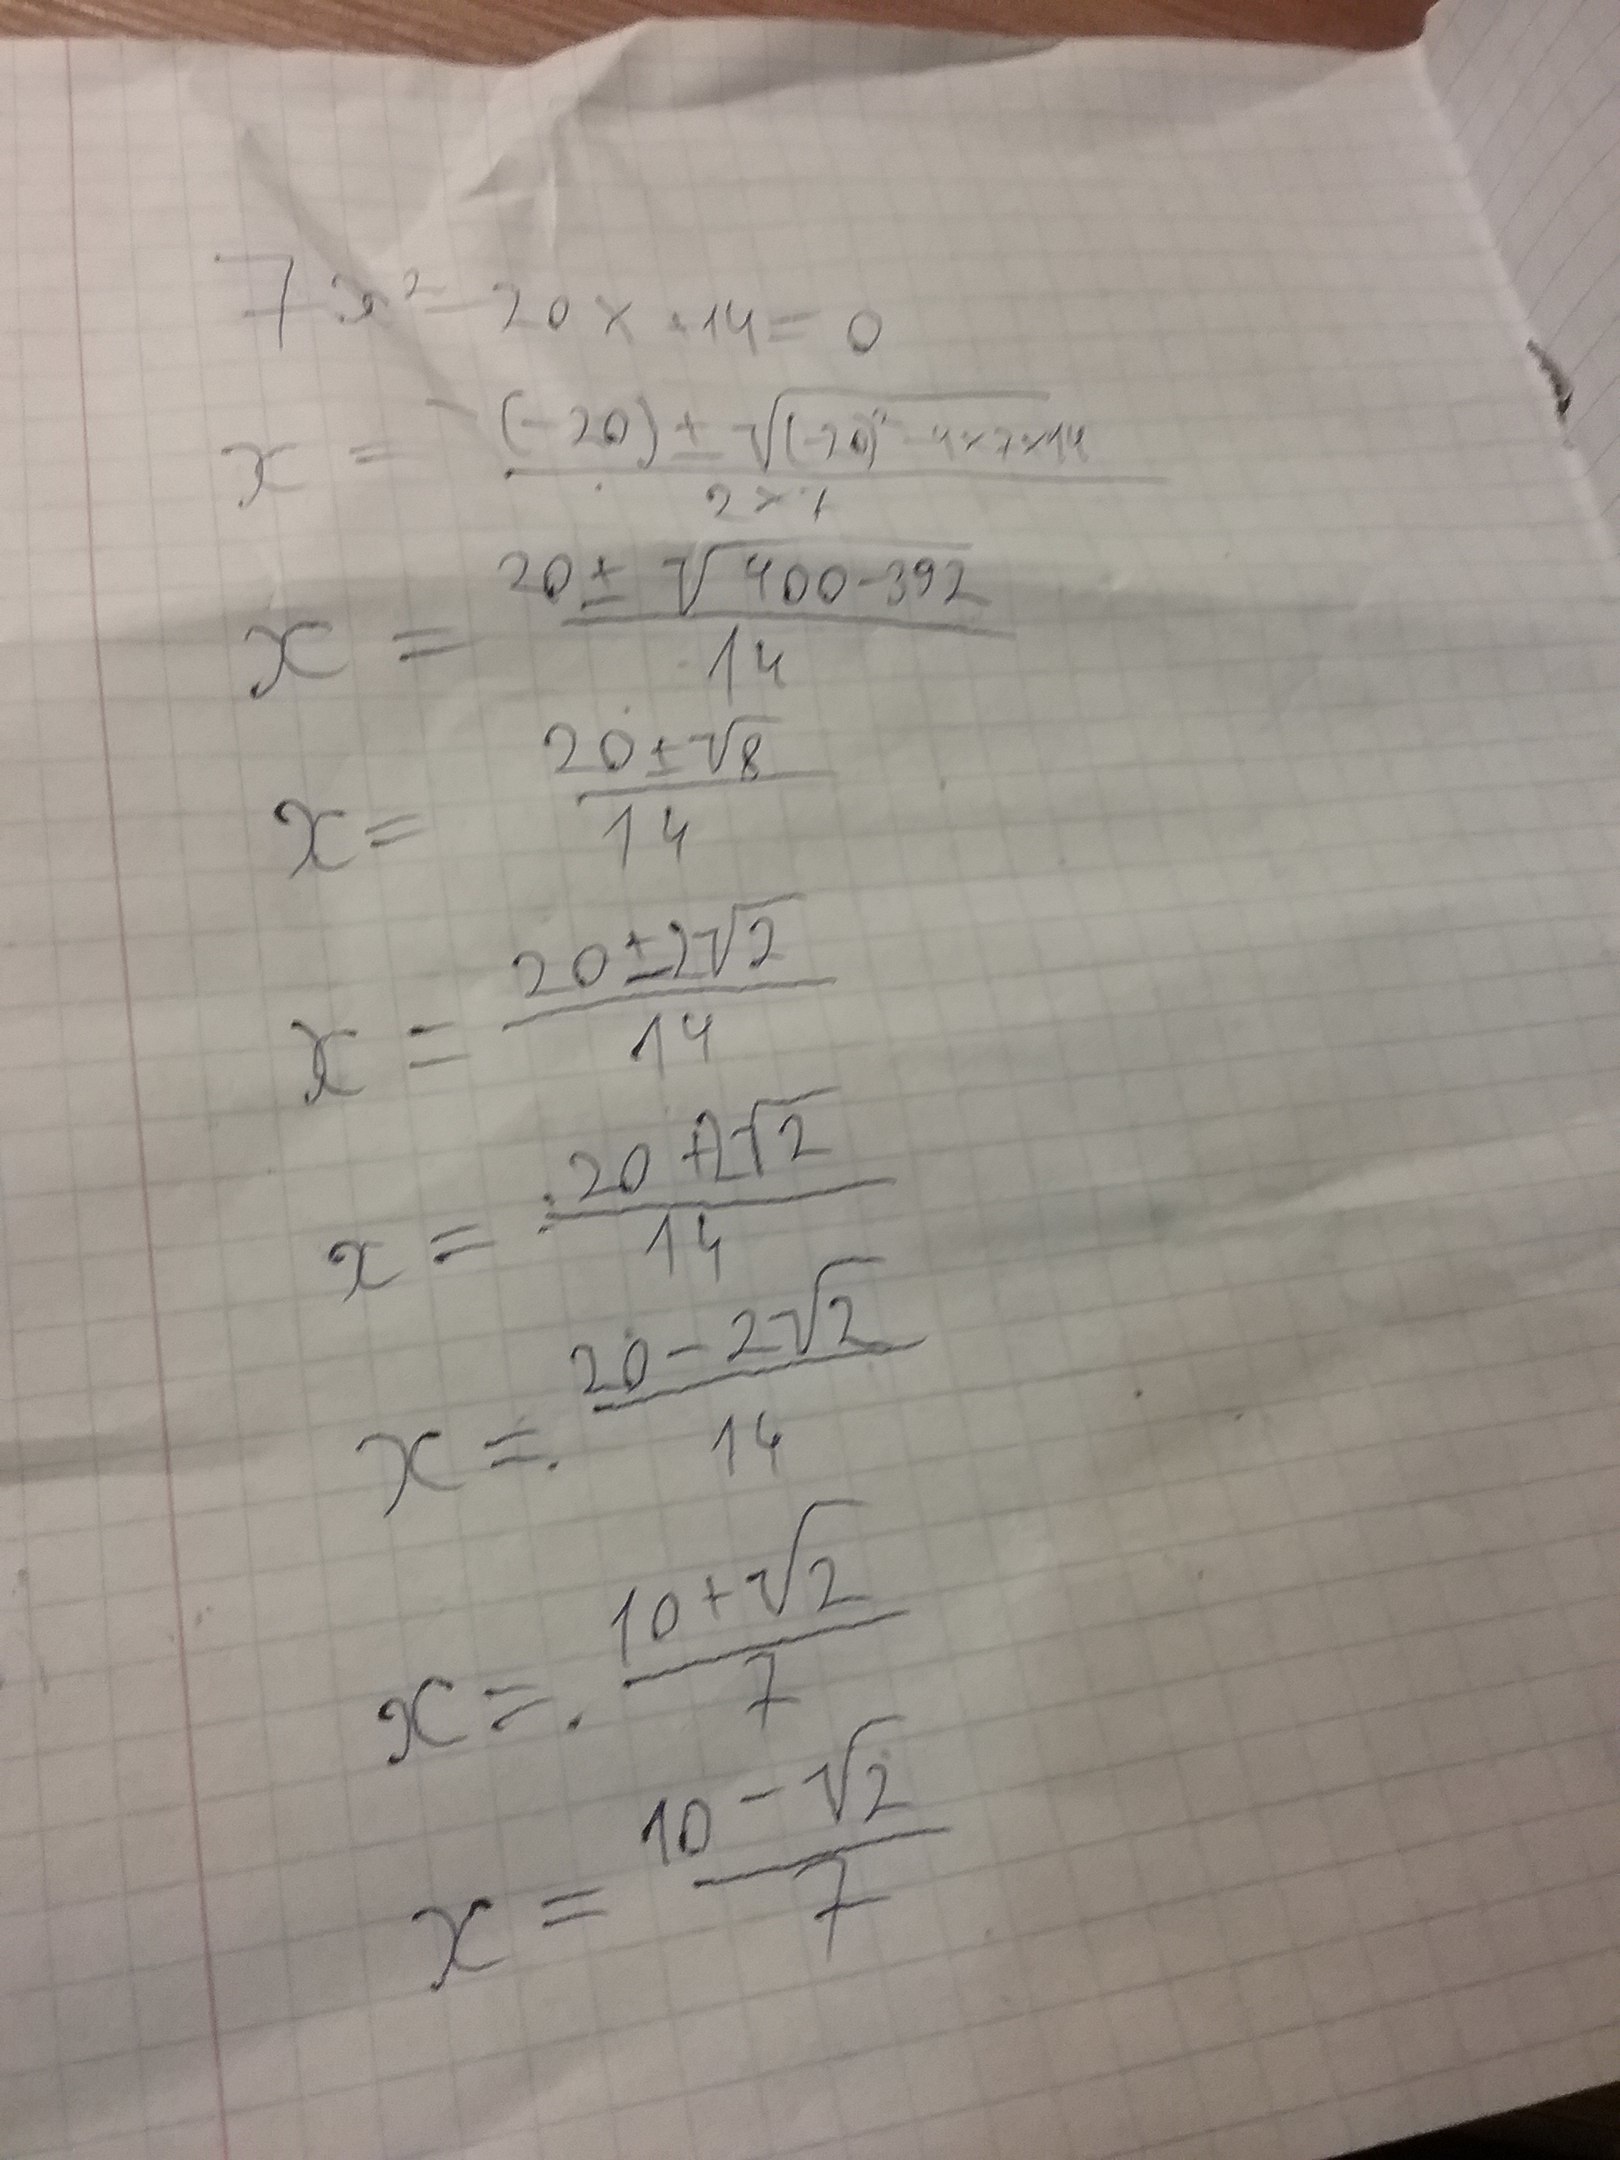 7x² - 20x + 14 = 0
x = -(-20) ± √(-20)² - 4×7×14 / 2×7
x = 20 ± √400-392 / 14
x = 20 ± √8 / 14
x = 20 ± 2√2 / 14
x = 20 + 2√2 / 14
x = 20 - 2√2 / 14
x = 10 + √2 / 7
x = 10 - √2 / 7